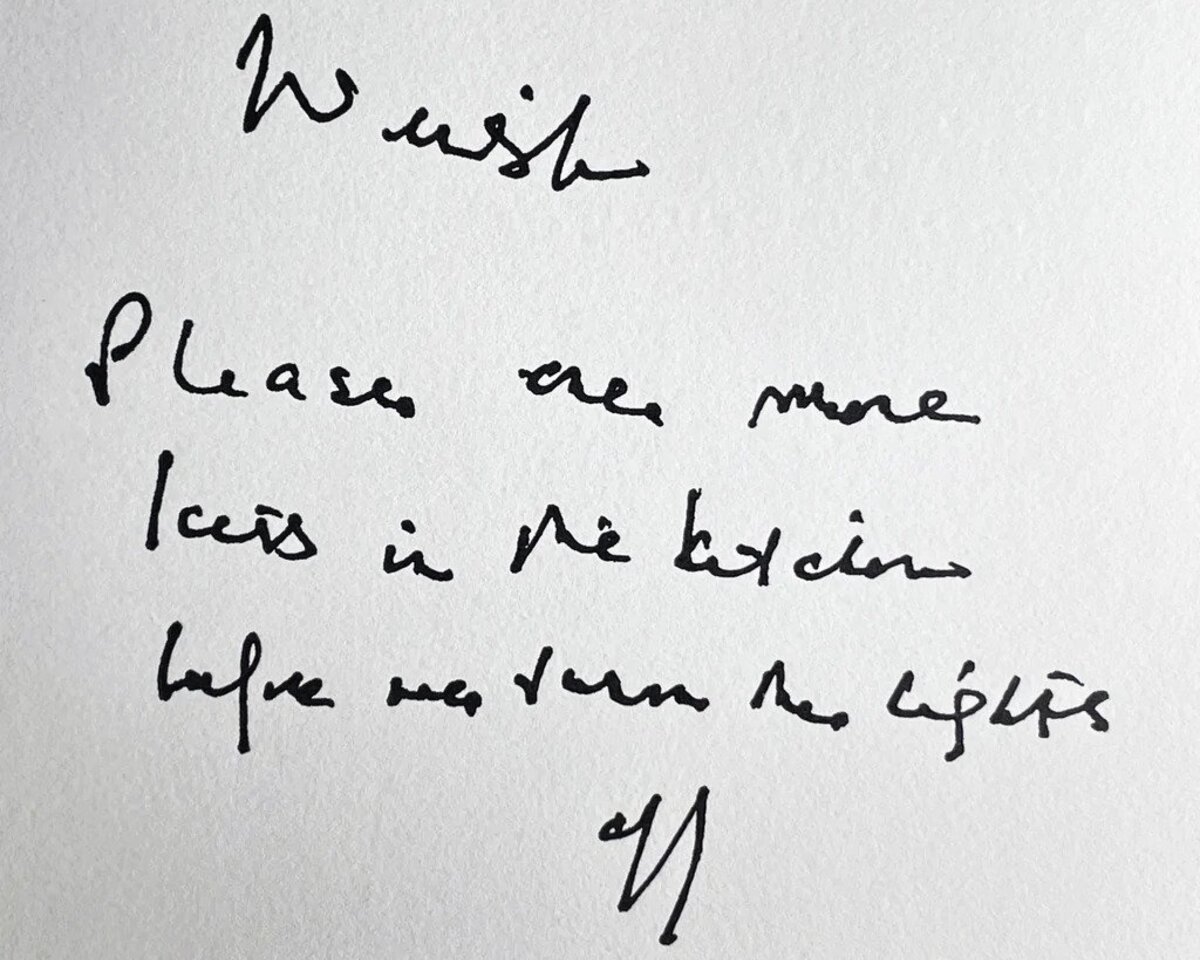 Wish
Please one more
kiss in the kitchen
before we turn the lights
off